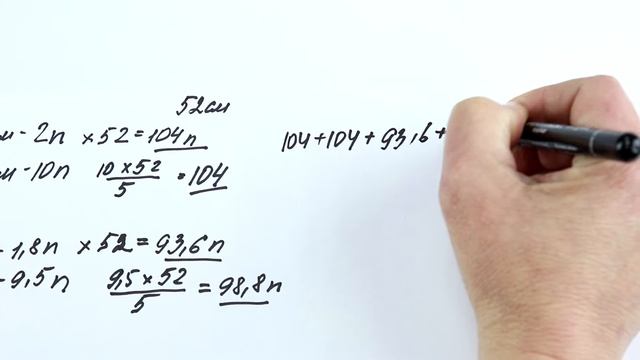 52см
м - 2п × 52 = 104п
104 + 104 + 93,6 +
м - 10п 10 × 52 / 5 = 104
- 1,8п × 52 = 93,6п
- 9,5п 9,5 × 52 / 5 = 98,8п